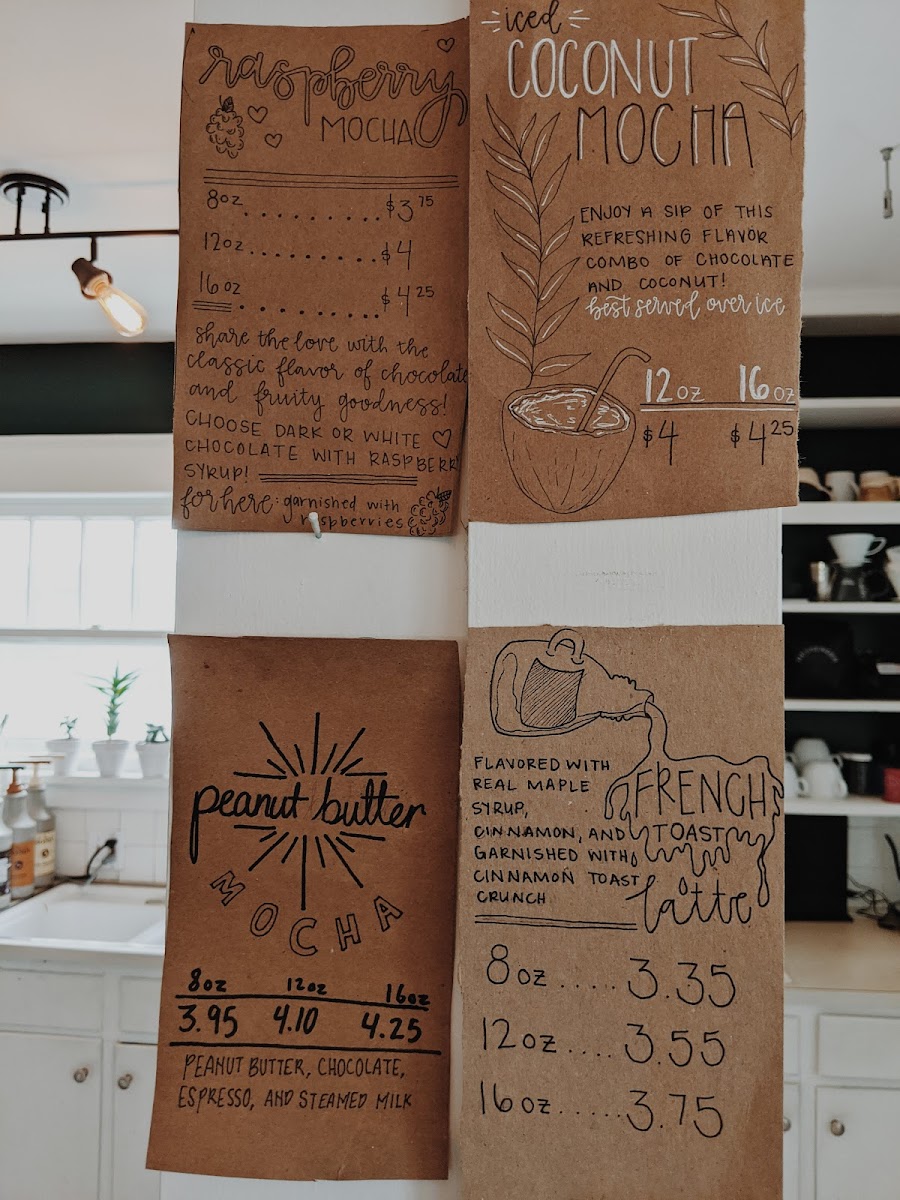 raspberry
MOCHA
8oz.........$3 75
12oz.........$4
16oz.........$4 25
share the love with the
classic flavor of chocolate
and fruity goodness!
CHOOSE DARK OR WHITE
CHOCOLATE WITH RASPBERRY
SYRUP!
for here: garnished with
raspberries
iced
COCONUT
MOCHA
ENJOY A SIP OF THIS
REFRESHING FLAVOR
COMBO OF CHOCOLATE
AND COCONUT!
best served over ice
12oz 16oz
$4 $4 25
peanut butter
MOCHA
8oz 12oz 16oz
3.95 4.10 4.25
PEANUT BUTTER, CHOCOLATE,
ESPRESSO, AND STEAMED MILK
FLAVORED WITH
REAL MAPLE
SYRUP,
CINNAMON, AND
GARNISHED WITH
CINNAMON TOAST
CRUNCH
FRENCH
TOAST
latte
8oz.....3.35
12oz....3.55
16oz......3.75